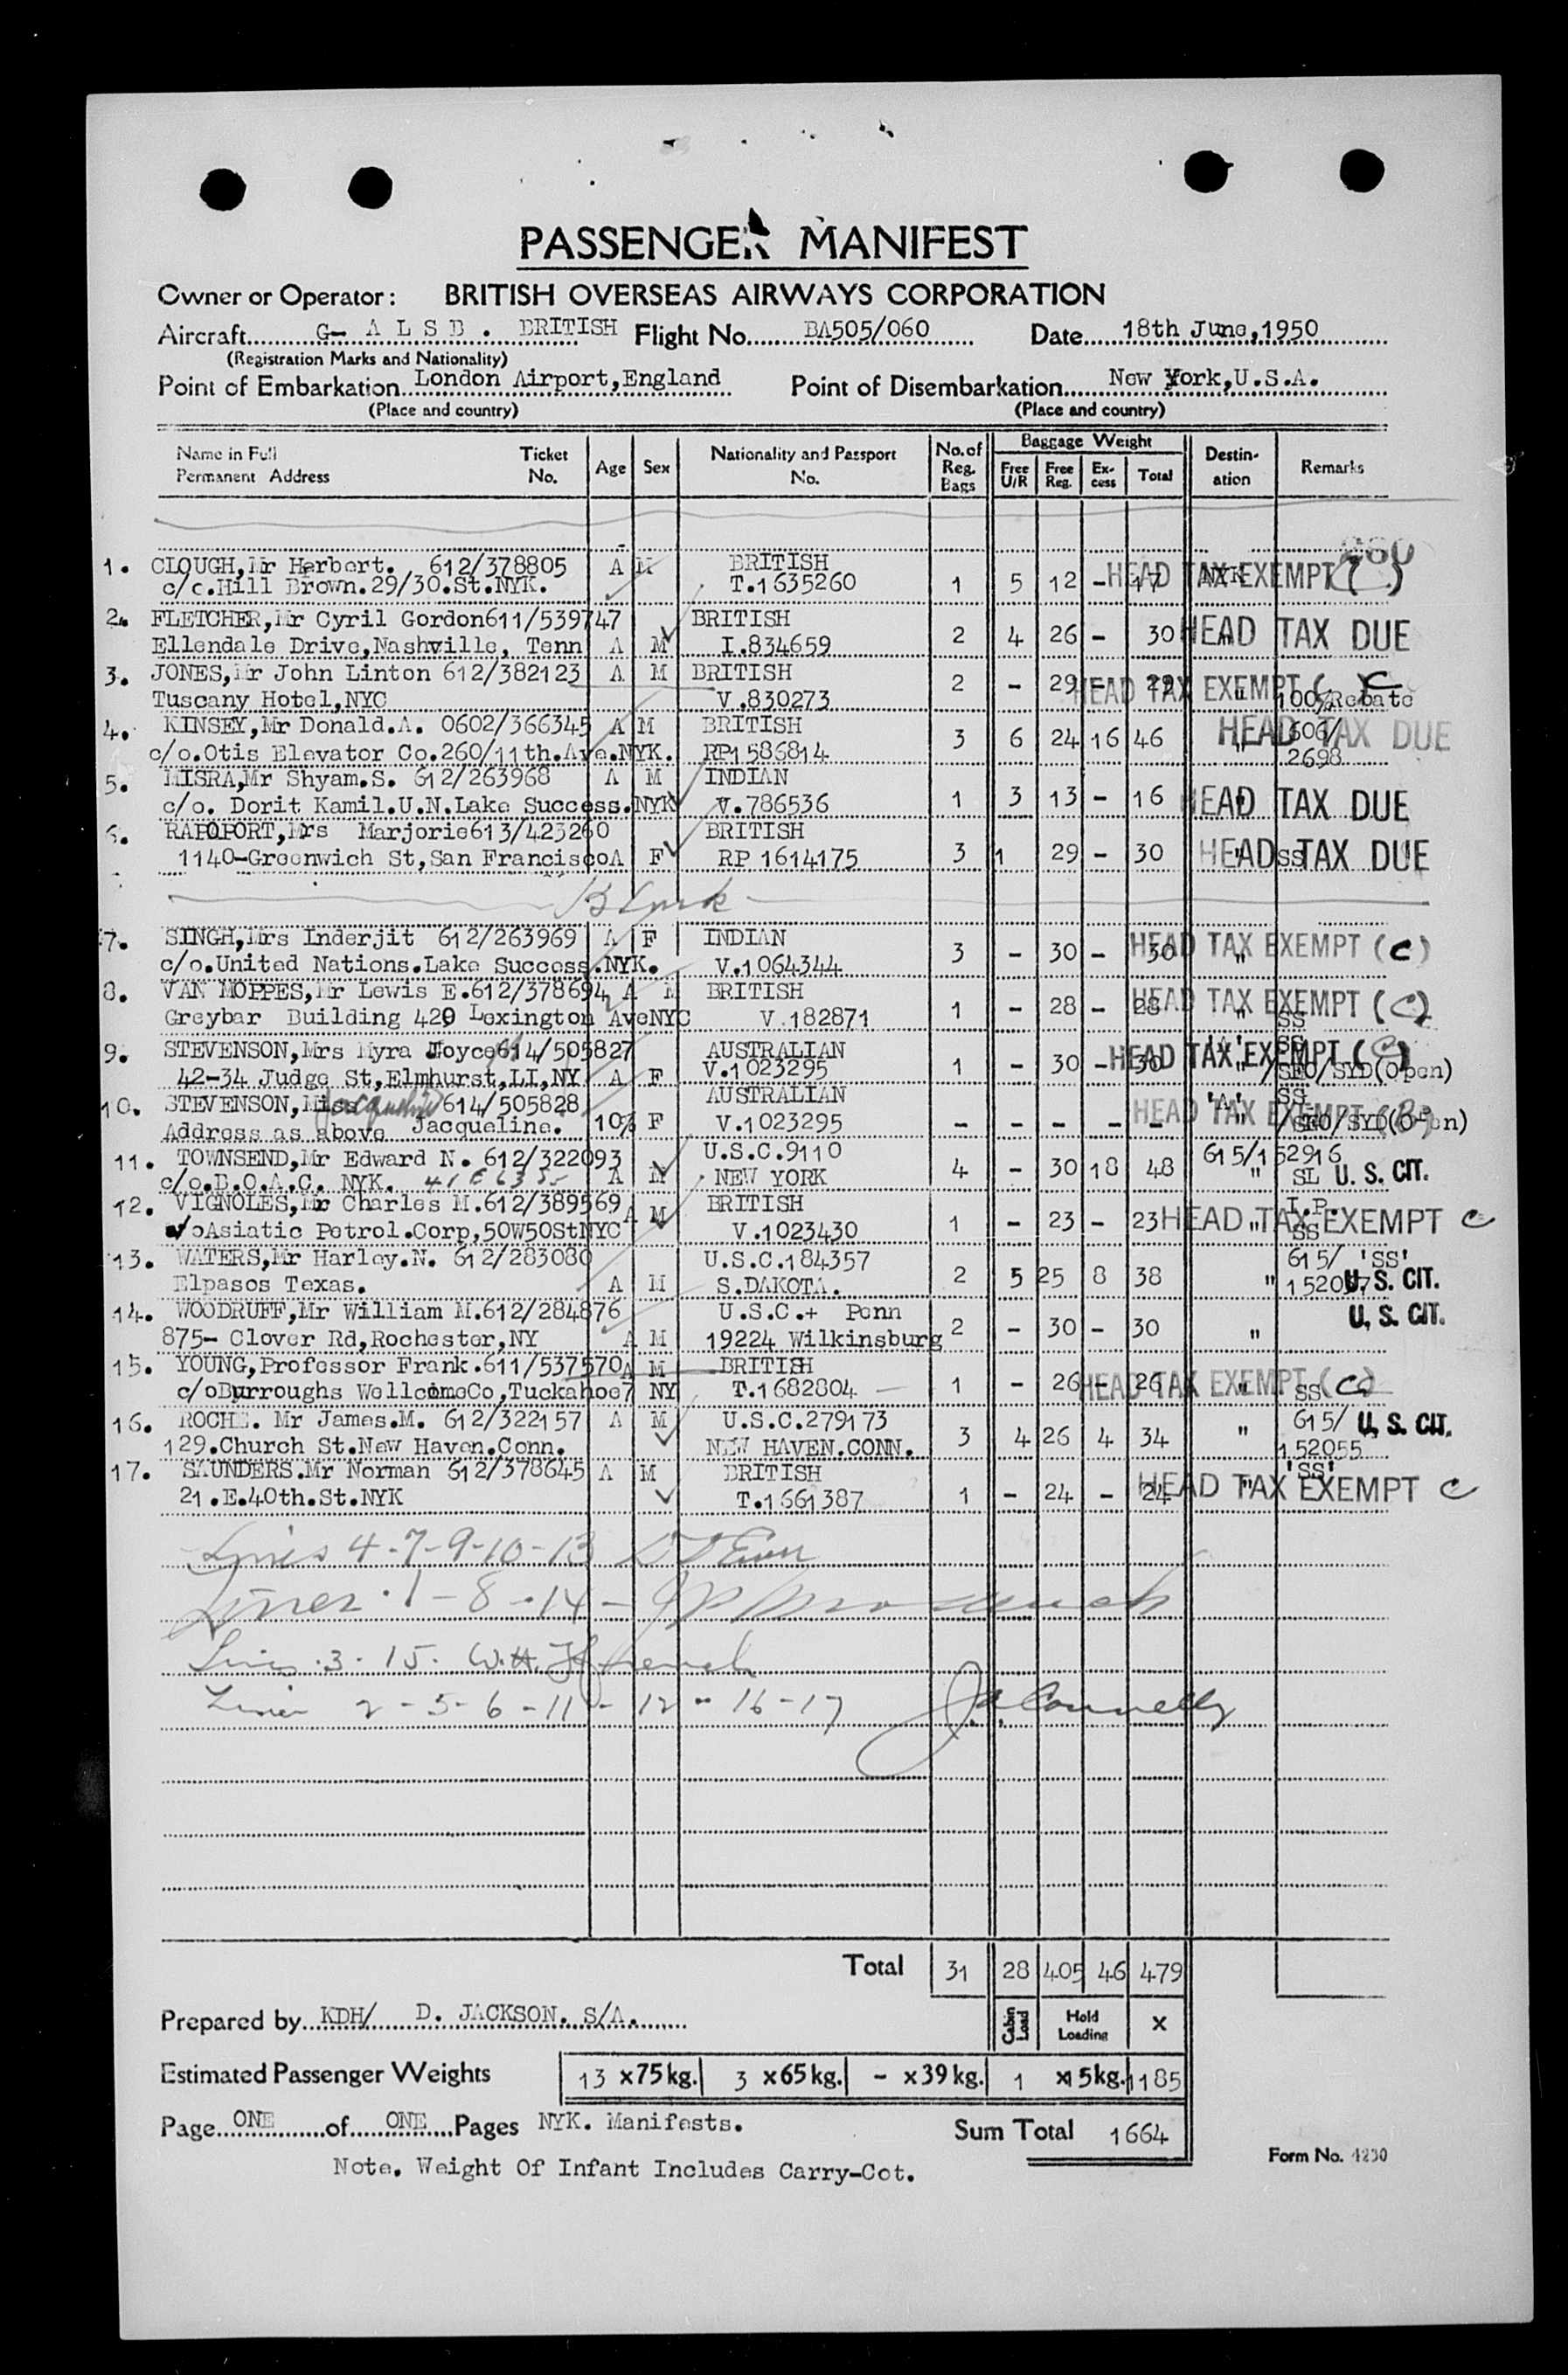 PASSENGER MANIFEST
Owner or Operator: BRITISH OVERSEAS AIRWAYS CORPORATION
Aircraft G- A L S B . BRITISH Flight No. BA505/060 Date 18th June,1950
(Registration Marks and Nationality)
Point of Embarkation London Airport,England Point of Disembarkation New York,U.S.A.
(Place and country) (Place and country)
Name in Full Permanent Address Ticket No. Age Sex Nationality and Passport No. No. of Reg. Bags Baggage Weight Free U/R Free Reg. Ex-cess Total Destin-ation Remarks
1. CLOUGH,Mr Herbert. 612/378805 A M BRITISH
c/o.Hill Brown.29/30.St.NYK. T.1635260 1 5 12 - 17 NYK HEAD TAX EXEMPT
2. FLETCHER,Mr Cyril Gordon611/539747 BRITISH
Ellendale Drive,Nashville, Tenn A M I.834659 2 4 26 - 30 " HEAD TAX DUE
3. JONES,Mr John Linton 612/382123 A M BRITISH
Tuscany Hotel,NYC V.830273 2 - 29 - 29 " HEAD TAX EXEMPT ( C 100% Rebate
4. KINSEY,Mr Donald.A. 0602/366345 A M BRITISH
c/o.Otis Elevator Co.260/11th.Ave.NYK. RP1586814 3 6 24 16 46 " HEAD TAX DUE 606/
2698
5. MISRA,Mr Shyam.S. 612/263968 A M INDIAN
c/o. Dorit Kamil.U.N.Lake Success.NYK V.786536 1 3 13 - 16 " HEAD TAX DUE
6. RAPOPORT,Mrs Marjorie613/423260 BRITISH
1140-Greenwich St,San Francisco A F RP 1614175 3 1 29 - 30 " SS HEAD TAX DUE
Blank
7. SINGH,Mrs Inderjit 612/263969 A F INDIAN
c/o.United Nations.Lake Success.NYK. V.1064344 3 - 30 - 30 " HEAD TAX EXEMPT (C)
8. VAN MOPPES,Mr Lewis E.612/378694 A M BRITISH
Greybar Building 420 Lexington AveNYC V.182871 1 - 28 - 28 " SS HEAD TAX EXEMPT (C)
9. STEVENSON,Mrs Myra Joyce614/505827 AUSTRALIAN 'A' SS
42-34 Judge St,Elmhurst,LI,NY A F V.1023295 1 - 30 - 30 " HEAD TAX EXEMPT (C) /SFO/SYD(Open)
10. STEVENSON,Miss Jacqueline 614/505828 AUSTRALIAN 'A' SS
Address as above Jacqueline. 10½ F V.1023295 - - - - - " HEAD TAX EXEMPT /SFO/SYD(Open)
11. TOWNSEND,Mr Edward N. 612/322093 U.S.C.9110 615/152916
c/o.B.O.A.C. NYK. A M NEW YORK 4 - 30 18 48 " SL U. S. CIT.
12. VIGNOLES,Mr Charles M.612/389569 A M BRITISH I.P.
c/oAsiatic Petrol.Corp,50W50StNYC V.1023430 1 - 23 - 23 " SS HEAD TAX EXEMPT C
13. WATERS,Mr Harley.N. 612/283080 U.S.C.184357 615/ 'SS'
Elpasos Texas. A M S.DAKOTA. 2 5 25 8 38 " U. S. CIT.
14. WOODRUFF,Mr William M.612/284876 U.S.C.+ Penn U. S. CIT.
875- Clover Rd,Rochester,NY A M 19224 Wilkinsburg 2 - 30 - 30 "
15. YOUNG,Professor Frank.611/537570 A M BRITISH
c/oBurroughs WellcomeCo,Tuckahoe7 NY T.1682804 1 - 26 - 26 " SS HEAD TAX EXEMPT (C)
16. ROCHE. Mr James.M. 612/322157 A M U.S.C.279173 615/ U. S. CIT.
129.Church St.New Haven.Conn. NEW HAVEN.CONN. 3 4 26 4 34 " 152055
17. SAUNDERS.Mr Norman 612/378645 A M BRITISH 'SS'
21.E.40th.St.NYK T.1661387 1 - 24 - 24 " HEAD TAX EXEMPT C
Lines 4-7-9-10-13
Lines 1-8-14-
Lines 3. 15. W.H.
Lines 2-5-6-11-12-16-17 Connelly
Total 31 28 405 46 479
Prepared by KDH/ D. JACKSON. S/A. Cabin Load Hold Loading X
Estimated Passenger Weights 13 x75kg. 3 x65kg. - x39kg. 1 x15kg. 1185
Page ONE of ONE Pages NYK. Manifests. Sum Total 1664
Note. Weight Of Infant Includes Carry-Cot. Form No. 4230